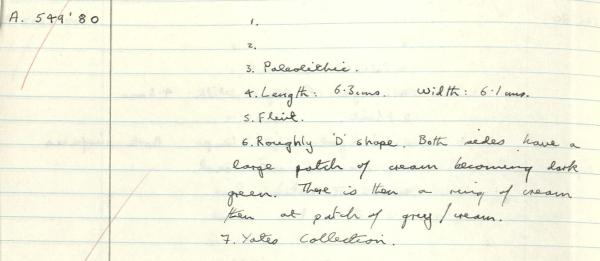 A. 549'80
1.
2.
3. Paleolithic.
4. Length: 6.3cms. Width: 6.1cms.
5. Flint.
6. Roughly 'D' shape. Both sides have a
large patch of cream becoming dark
green. There is then a ring of cream
then at patch of grey/cream.
7. Yates Collection.